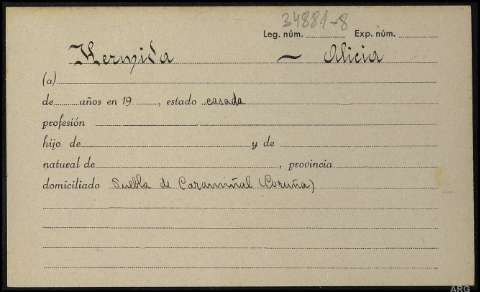 34881-8
Leg. núm. Exp. núm.
Hermida — Alicia
(a)
de años en 19 , estado casada
profesión
hijo de y de
natural de , provincia
domiciliado Puebla de Caramiñal (Coruña)
ARG